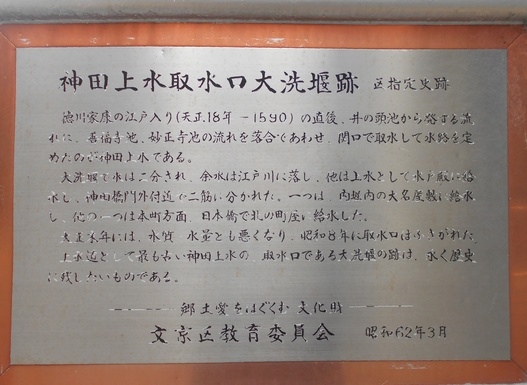 神田上水取水口大洗堰跡 区指定史跡
徳川家康の江戸入り(天正18年－1590)の直後、井の頭池から発する流
れに、善福寺池、妙正寺池の流れを落合であわせ、関口で取水して水路を定
めたのが神田上水である。
大洗堰で水は二分され、余水は江戸川に落し、他は上水として水戸殿に給
水し、神田橋門外付近で二筋に分かれた。一つは、内堀内の大名屋敷に給水
し、他の一つは本町方面、日本橋で北の町屋に給水した。
大正末年には、水質、水量とも悪くなり、昭和8年に取水口はふさがれた。
上水道として最も古い神田上水の、取水口である大洗堰の跡は、永く歴史
に残したいものである。
郷土愛をはぐくむ文化財
文京区教育委員会 昭和62年3月